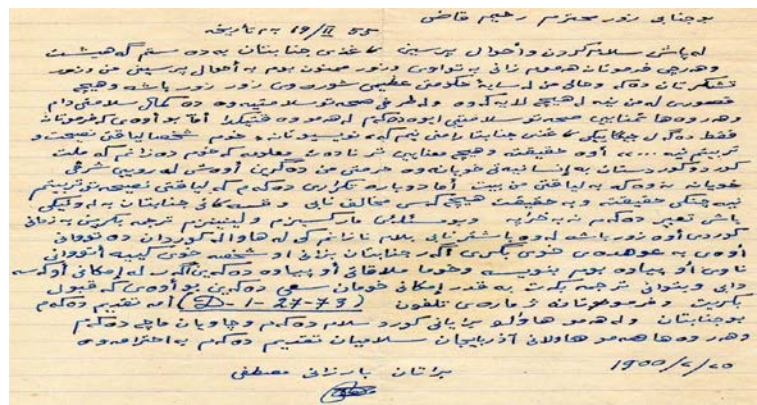 بوجنابی زور محترم رحیم قاضی
به تاریخه 19/II 55
له پاش سلام کردن و احوال پرسینی کاغذی جنابتان به ده ستم گه هیشت
وهه رچی فرموتان هه موم زانی به تواوی وزور ممنون بوم به أحوال پرسینی من وزور
تشکرتان ده که م وحالی من له سایة حکومتی عظیمی شوره وی زور زور باشه وهیچ
قصوری له من نیه له هیچ لایه که وه وله طرفی صحه تو سلامتیه وه ده کمال سلامتی دام
وهه روه ها تمنایی صحه تو سلامتی ایوه ده که م له هه مو وه قتیکدا أما بو أوه ی که فرموتانه
فقط ده گه ل جیگاییکی کاغذی جنابتا رامنی نیم که نویسیوتانه خوم شخصا لیاقتی نصیحت و
تربیتم نیه أوه حقیقته وهیچ معنایی تر ناده ن معلومه که خوم ده زانم که ملت
کورد و کوردستان به إنسانیه تی خویانه وه حرمتی من ده گرن أوه ش له رویی شرفی
خویانه نه وه که به لیاقتی من بیت أما دوباره تکراری ده که م که لیاقتی نصیحه تو تربیتم
نیه چنکی حقیقته و به حقیقت هیچ که س مخالف نابی و قسه کانی جنابتان به له ولیکی
باش تعبیر ده که م نه به خرابه وبو مسئلەی مارکسیزم و لینینیزم ترجمه بکرین به زمانی
کوردی أوه زور باشه له وه باشتر نابی بلام نازانم کی له هاواله کوردان ده تووانی
أوه ی به عوهده ی خوی بگری أگه ر جنابتان بزانی او شخصه خوی کییه أتووانی
ناوی او پیاوه بوم بنویسه وخوما ملاقاتی او پیاوه ده که ین أگه ر له إمکانی أوکه سه
دابی وبتوانی ترجمه بکات به قدر إمکانی خومان سعی ده که ین بو أوه ی که قبول
بکریت و فرموموتانه ژماره ی تلفون (D-1-27-73) أمه تقدیم ده که م
بوجنابتان وله هه مو هاوالو برایانی کورد سلام ده که م وچاویان ماچ ده که م
وهه روه ها هه مو هاولانی آذربایجان سلامیان تقدیم ده که م به احترامه وه
براتان بارزانی مصطفی
١٩٥٥/٢/٢٥